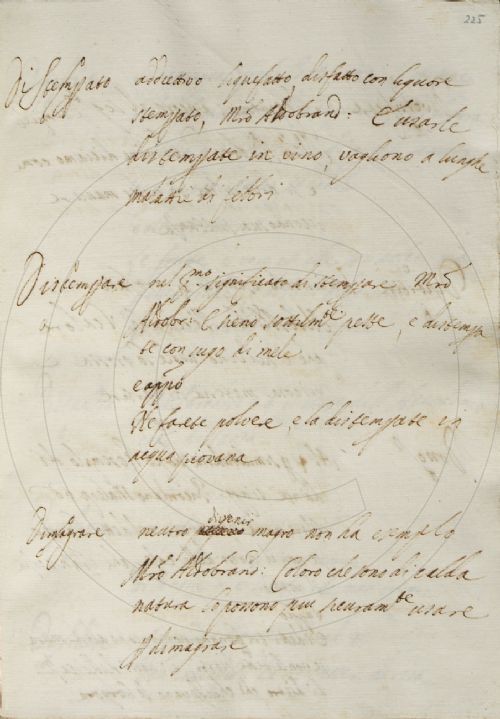 225
Distempato addiettivo liquefatto, disfatto con liquore
stempato, Mro Aldobrand: E usarle
distempate in vino, vagliono a lunghe
malattie di febbri
Distempare nel mo significato di stempare Mro
Aldobr: E sieno sottilmte peste, e distempa
te con sugo di mele
e appo
Ne farete polvere, e la distempate in
acqua piovana
Dimagrare neutro divenir magro non ha esemplo
Mro Aldobrand: Coloro che sono di calda
natura lo possono piu sicuramte usare
a dimagrare